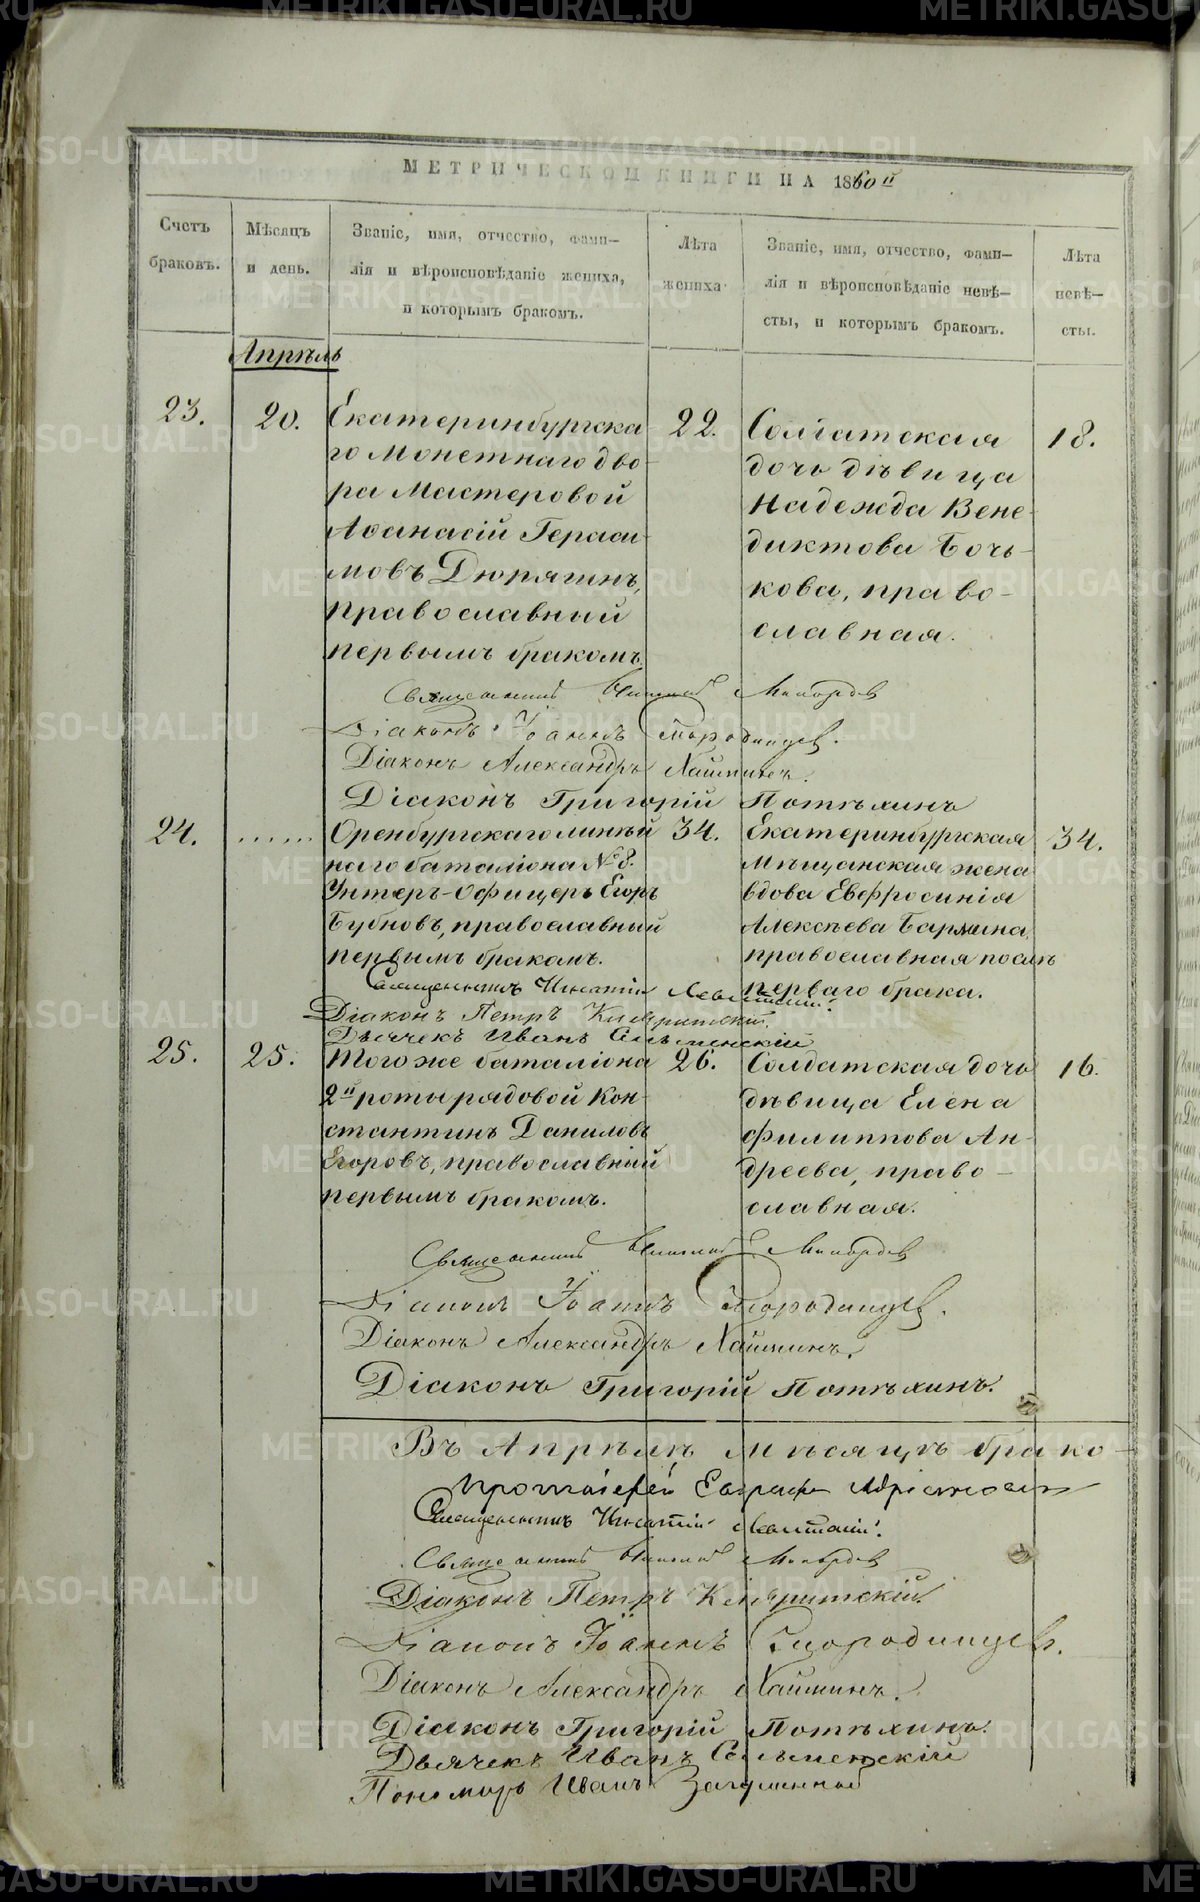 МЕТРИЧЕСКОЙ КНИГИ НА 1860й
Счетъ браковъ.
Мѣсяцъ и день.
Званіе, имя, отчество, фами–
лія и вѣроисповѣданіе жениха,
и которымъ бракомъ.
Лѣта жениха
Званіе, имя, отчество, фами–
лія и вѣроисповѣданіе невѣ–
сты, и которымъ бракомъ.
Лѣта невѣ–
сты.
Апрѣль
23.
20.
Екатеринбургска
го Монетнаго дво-
ра Мастеровой
Аѳанасій Гераси-
мовъ Дюрягинъ,
православный
первымъ бракомъ.
22.
Солдатская
дочь дѣвица
Надежда Вене-
диктова Бочь-
кова, право-
славная.
18.
Священникъ
Діаконъ Іоаннъ
Діаконъ Александръ Хаймин.
Діаконъ Григорій Потѣхинъ
24.
......
Оренбургскаго линѣй
наго баталіона № 8.
Унтеръ-Офицеръ Егоръ
Бубновъ, православный
первымъ бракомъ.
34.
Екатеринбургская
Мѣщанская жена
вдова Евфросинія
Алексѣева Бармина,
православная послѣ
перваго брака.
34.
Священникъ Игнатій Левитскій.
Діаконъ Петръ
Дьячекъ Иванъ
25.
25.
Того же баталіона
2й роты рядовой Кон-
стантинъ Даниловъ
Егоровъ, православный
первымъ бракомъ.
26.
Солдатская дочь
дѣвица Елена
Филиппова Ан-
дреева, право-
славная.
16.
Священникъ
Діаконъ Іоаннъ
Діаконъ Александръ
Діаконъ Григорій Потѣхинъ.
Въ Апрѣлѣ мѣсяцѣ брако-
Протоіерей
Священникъ Игнатій Левитскій.
Священникъ
Діаконъ Петръ
Діаконъ Іоаннъ
Діаконъ Александръ
Діаконъ Григорій Потѣхинъ.
Дьячекъ Иванъ
Пономарь Иванъ
METRIKI.GASO-URAL.RU